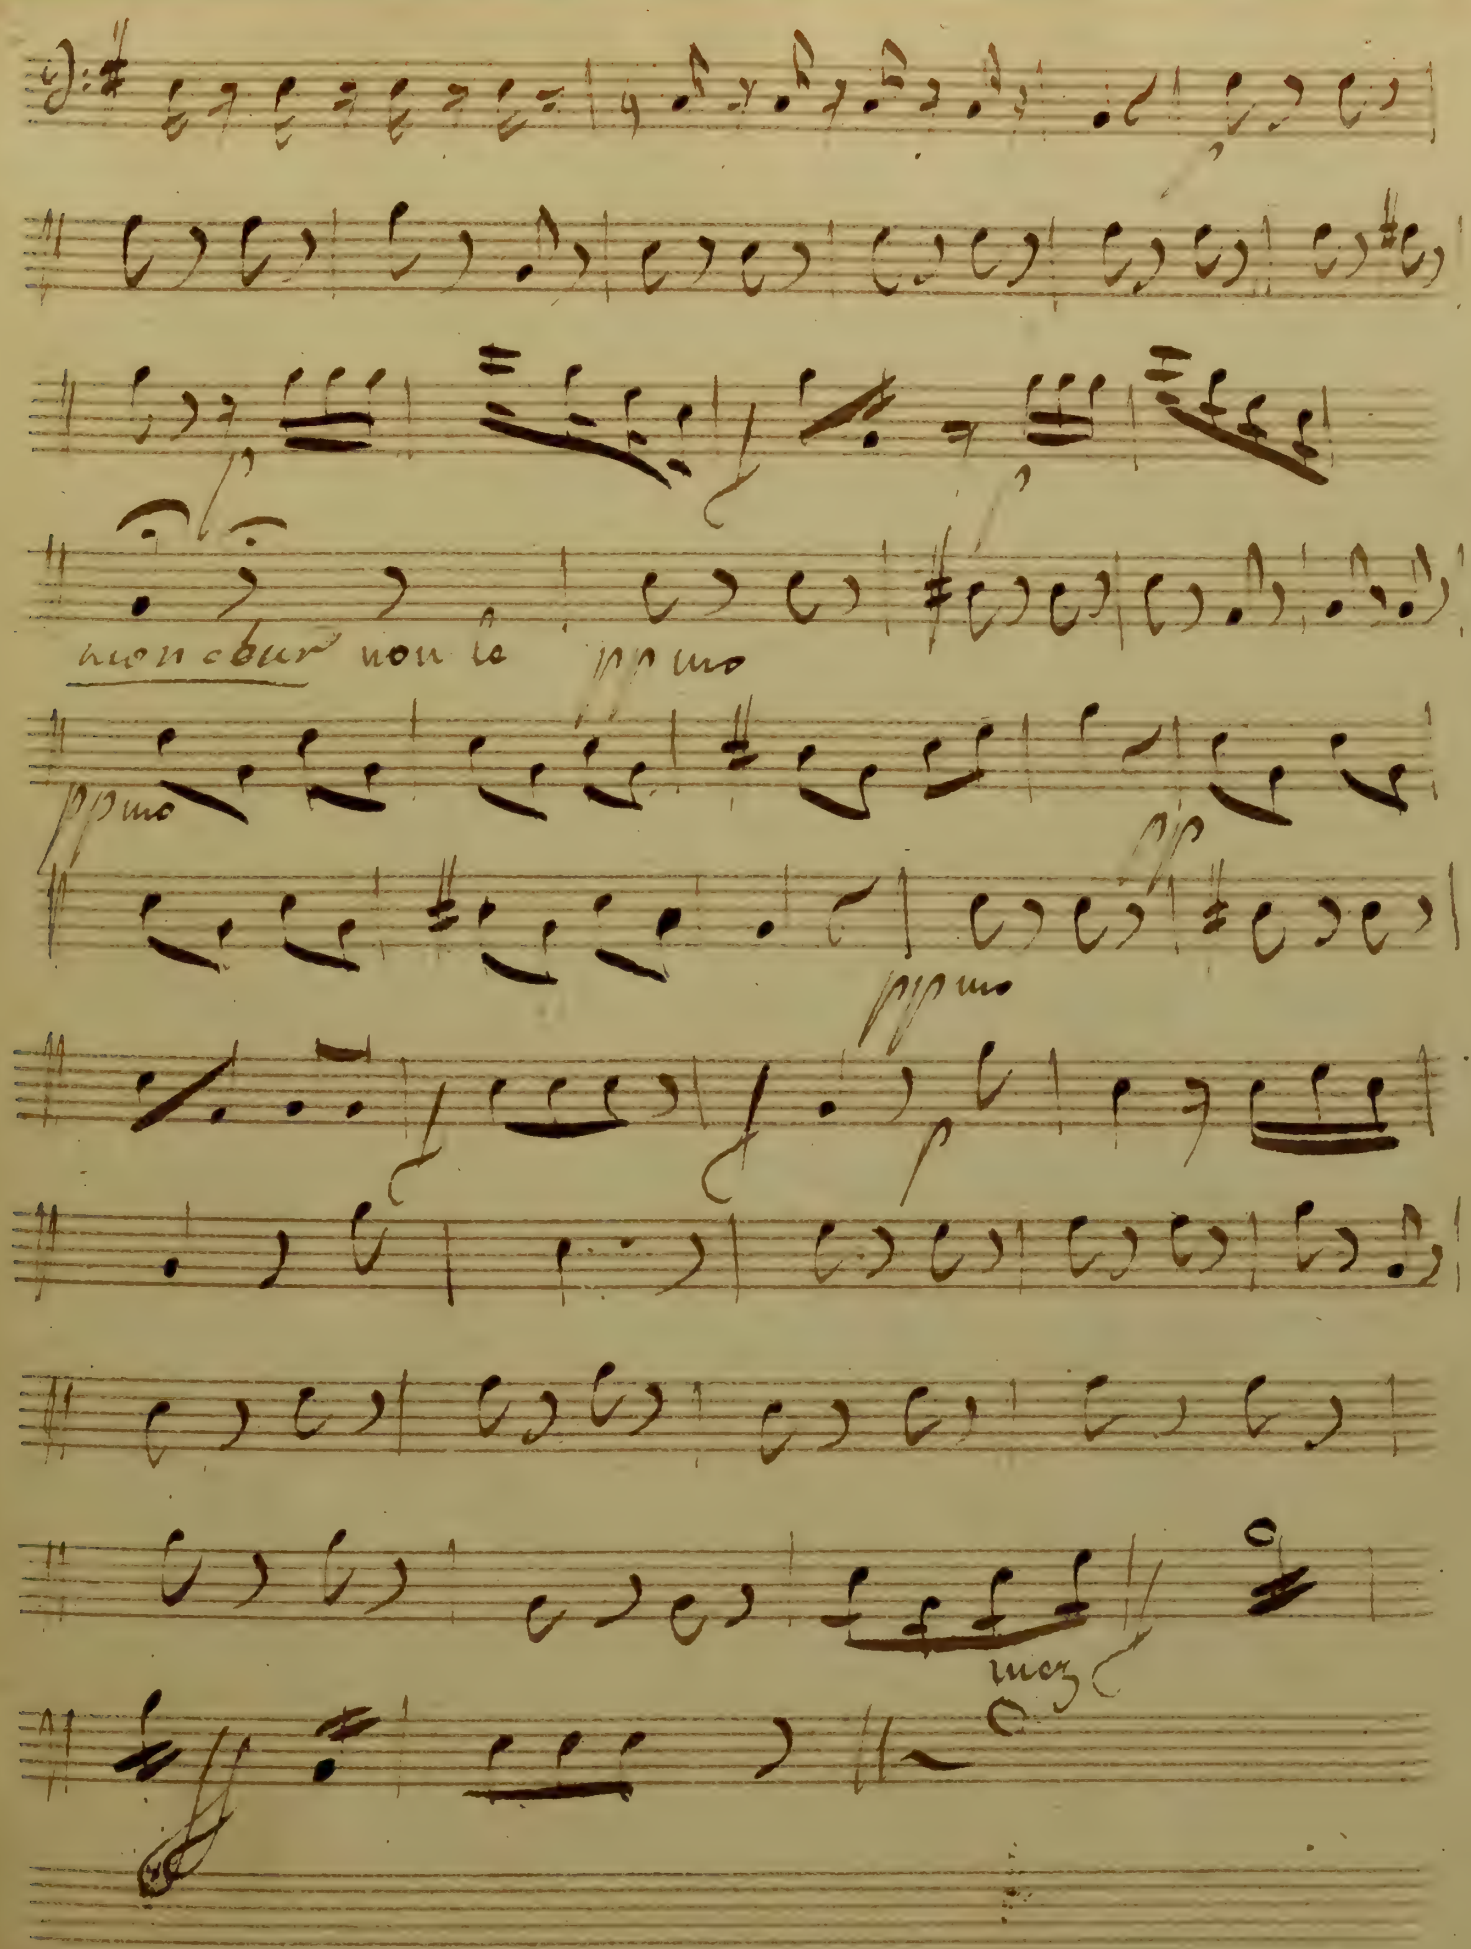 p
p f p
mon cœur non le ppmo
ppmo pp
ppmo
f f p
mez f
ff